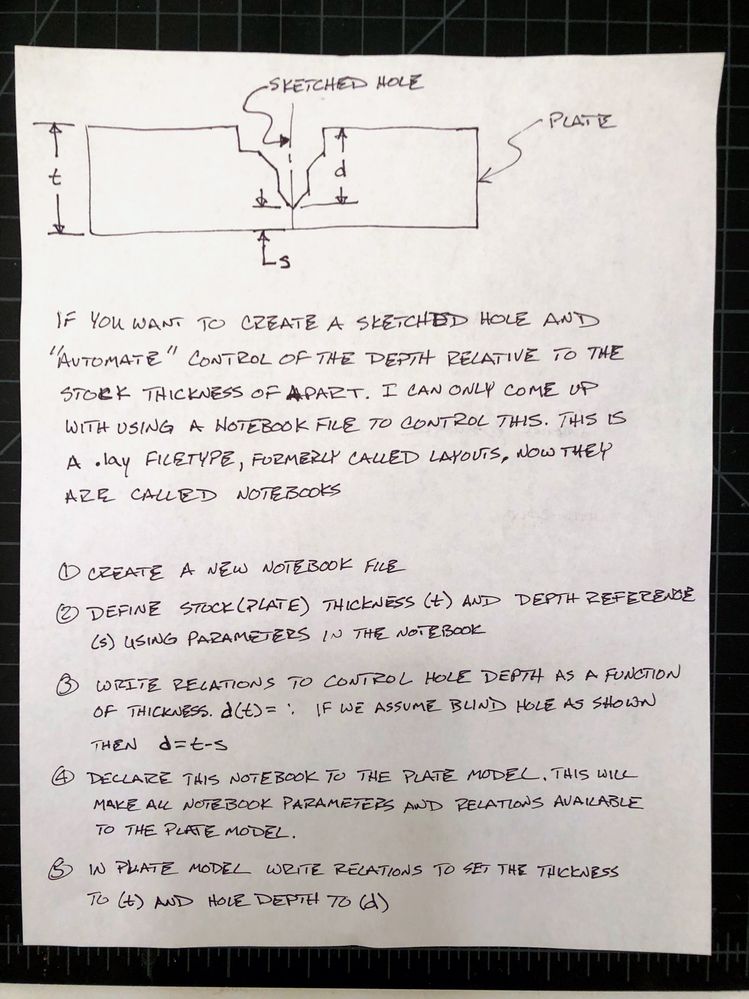 SKETCHED HOLE
PLATE
t
d
s
IF YOU WANT TO CREATE A SKETCHED HOLE AND
"AUTOMATE" CONTROL OF THE DEPTH RELATIVE TO THE
STOCK THICKNESS OF A PART. I CAN ONLY COME UP
WITH USING A NOTEBOOK FILE TO CONTROL THIS. THIS IS
A .lay FILETYPE, FORMERLY CALLED LAYOUTS, NOW THEY
ARE CALLED NOTEBOOKS
① CREATE A NEW NOTEBOOK FILE
② DEFINE STOCK (PLATE) THICKNESS (t) AND DEPTH REFERENCE
(s) USING PARAMETERS IN THE NOTEBOOK
③ WRITE RELATIONS TO CONTROL HOLE DEPTH AS A FUNCTION
OF THICKNESS. d(t)= : IF WE ASSUME BLIND HOLE AS SHOWN
THEN d=t-s
④ DECLARE THIS NOTEBOOK TO THE PLATE MODEL. THIS WILL
MAKE ALL NOTEBOOK PARAMETERS AND RELATIONS AVAILABLE
TO THE PLATE MODEL.
⑤ IN PLATE MODEL WRITE RELATIONS TO SET THE THICKNESS
TO (t) AND HOLE DEPTH TO (d)